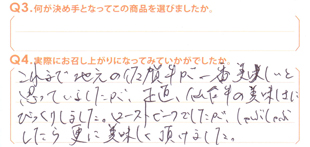 Q3.何が決め手となってこの商品を選びましたか。
Q4.実際にお召し上がりになってみていかがでしたか。
これまで地元の佐賀牛が一番美味しいと
思っていましたが、正直、仙台牛の美味しさに
びっくりしました。ローストビーフでしたが、しゃぶしゃぶ
したら更に美味しく頂けました。